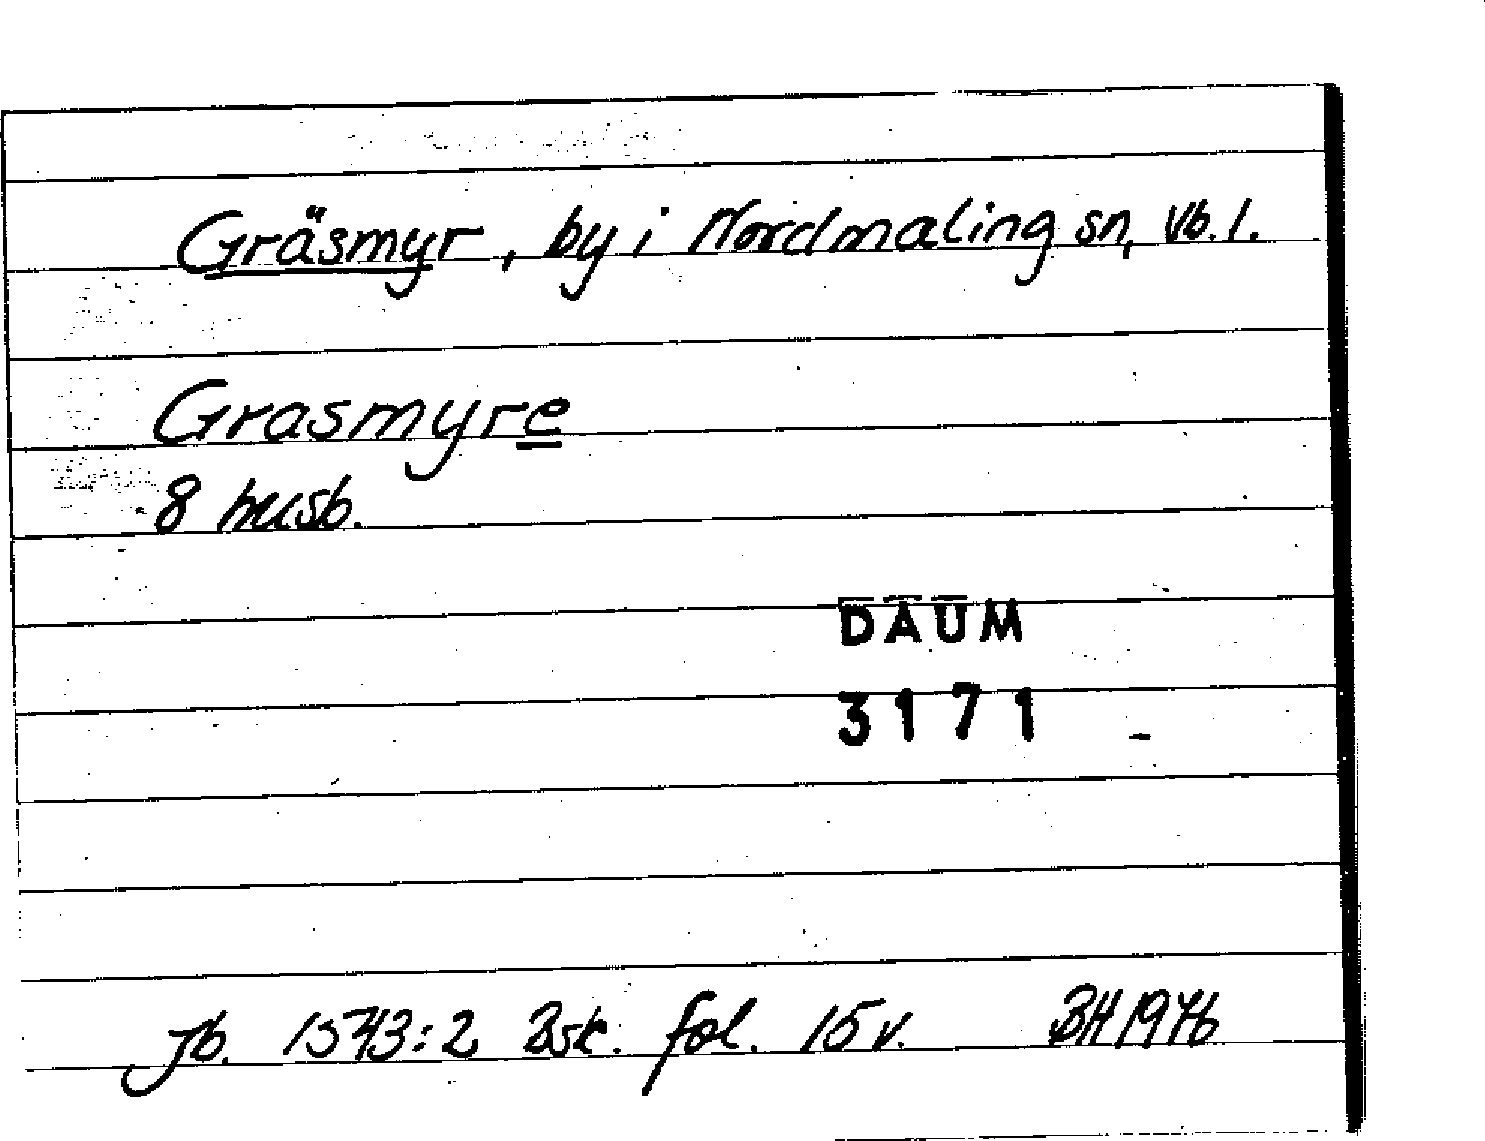 Gräsmyr, by i Nordmaling sn, Vb. l.
Grasmyre
8 husb.
DAUM
3171
Jb. 1543:2 Bsk. fol. 15 v. BH 1976